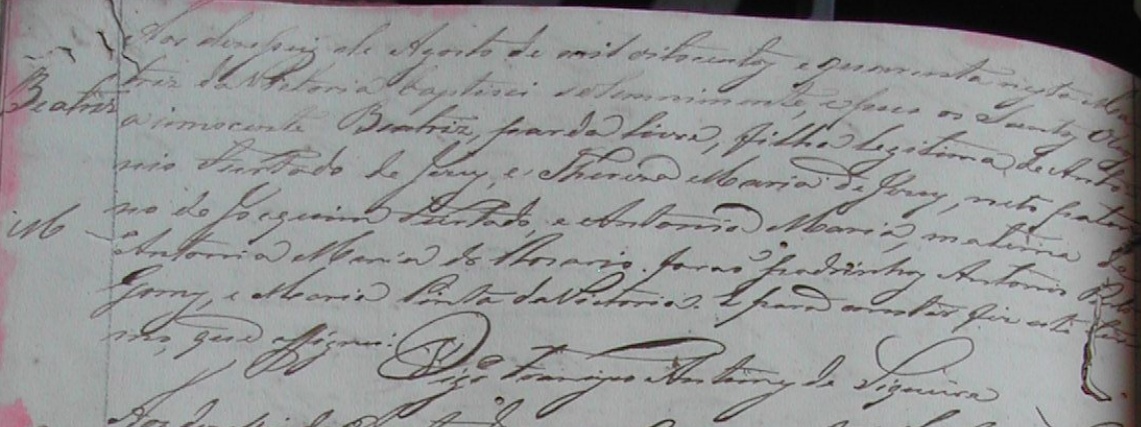 Aos dezaseiz de Agosto de mil oitocentos e quarenta nesta Ma
triz da Victoria baptisei solemnimente, e puz os Santos Ole
Beatriz
a innocente Beatriz, parda livre, filha legitima de Anto
nio Furtado de Jesus, e Thereza Maria de Jesus, neta pater
na de Joaquim Furtado, e Antonia Maria, materna de
M
Antonia Maria do Rosario. Foraõ padrinhos Antonio
Gomes, e Maria Pinta da Victoria. E para constar fiz este
mo, que assignei.
Vigrº Francisco Antunes de Siqueira